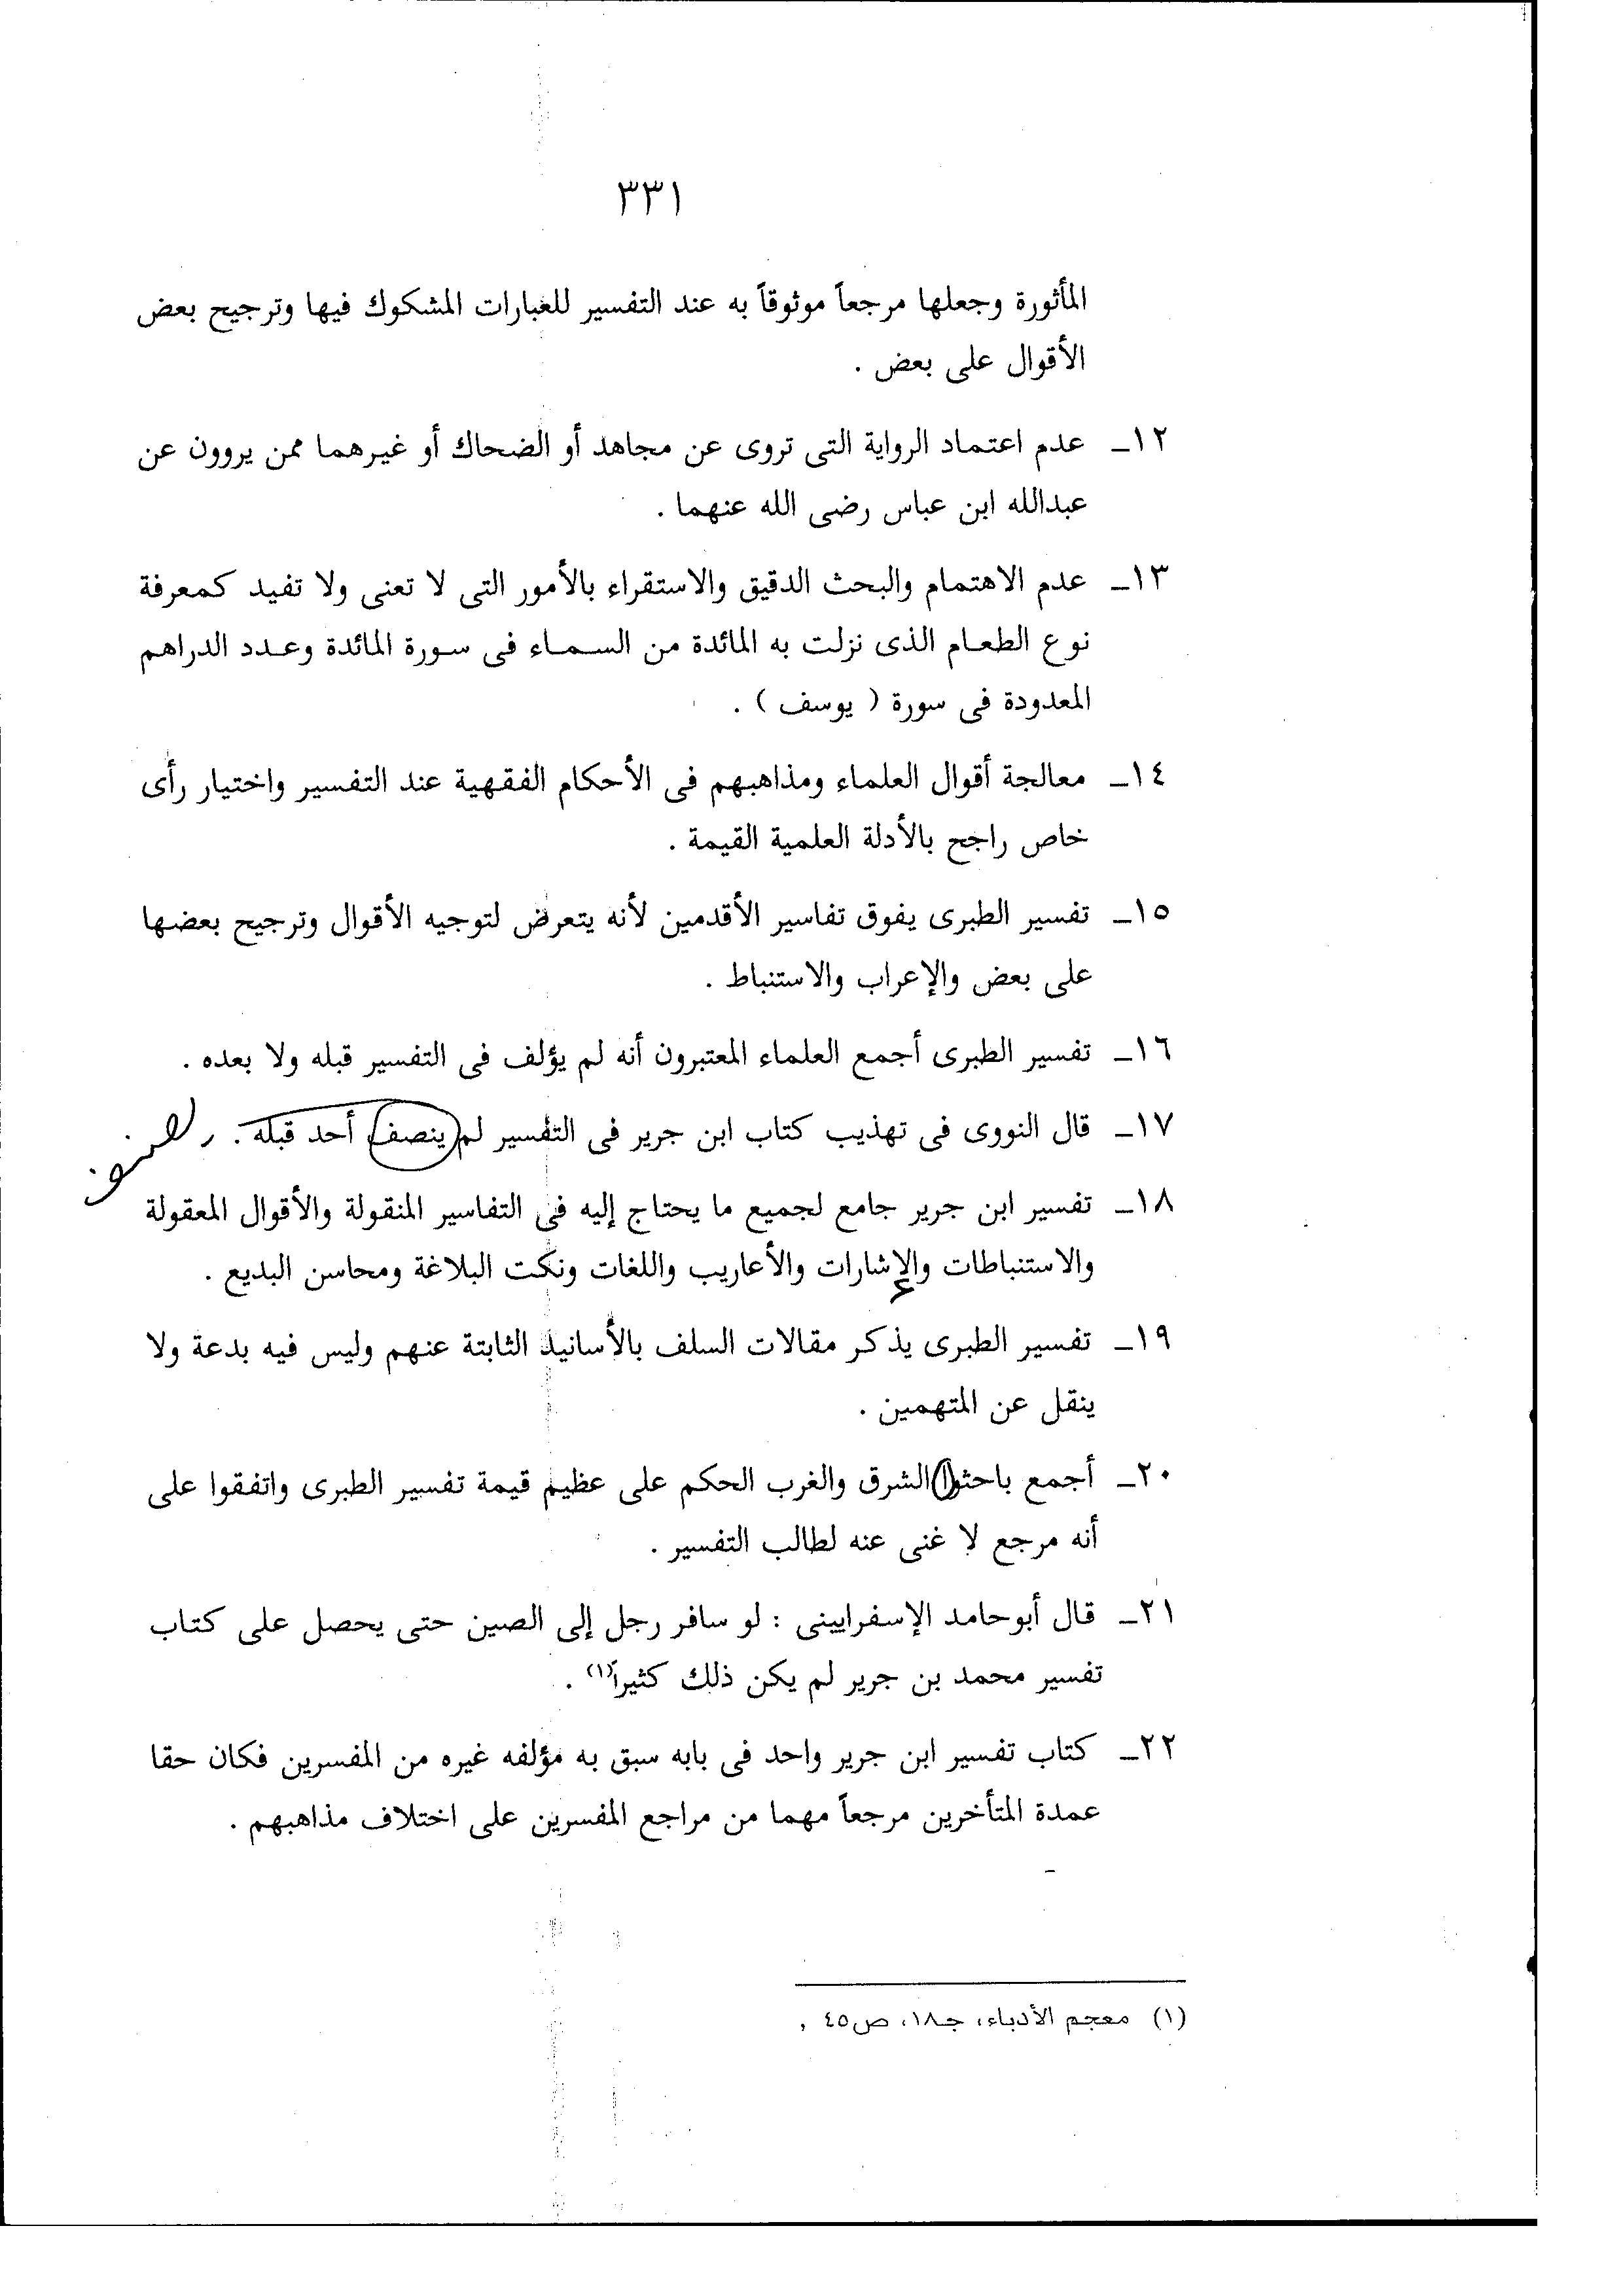 ٣٣١
المأثورة وجعلها مرجعاً موثوقاً به عند التفسير للعبارات المشكوك فيها وترجيح بعض
الأقوال على بعض .
١٢ـ عدم اعتماد الرواية التى تروى عن مجاهد أو الضحاك أو غيرهما ممن يروون عن
عبدالله ابن عباس رضى الله عنهما .
١٣ـ عدم الاهتمام والبحث الدقيق والاستقراء بالأمور التى لا تعنى ولا تفيد كمعرفة
نوع الطعام الذى نزلت به المائدة من السماء فى سورة المائدة وعدد الدراهم
المعدودة فى سورة ( يوسف ) .
١٤ـ معالجة أقوال العلماء ومذاهبهم فى الأحكام الفقهية عند التفسير واختيار رأى
خاص راجح بالأدلة العلمية القيمة .
١٥ـ تفسير الطبرى يفوق تفاسير الأقدمين لأنه يتعرض لتوجيه الأقوال وترجيح بعضها
على بعض والإعراب والاستنباط .
١٦ـ تفسير الطبرى أجمع العلماء المعتبرون أنه لم يؤلف فى التفسير قبله ولا بعده .
١٧ـ قال النووى فى تهذيب كتاب ابن جرير فى التفسير لم ينصف أحد قبله .
١٨ـ تفسير ابن جرير جامع لجميع ما يحتاج إليه فى التفاسير المنقولة والأقوال المعقولة
والاستنباطات والإشارات والأعاريب واللغات ونكت البلاغة ومحاسن البديع .
١٩ـ تفسير الطبرى يذكر مقالات السلف بالأسانيد الثابتة عنهم وليس فيه بدعة ولا
ينقل عن المتهمين .
٢٠ـ أجمع باحثوا الشرق والغرب الحكم على عظيم قيمة تفسير الطبرى واتفقوا على
أنه مرجع لا غنى عنه لطالب التفسير .
٢١ـ قال أبوحامد الإسفرايينى : لو سافر رجل إلى الصين حتى يحصل على كتاب
تفسير محمد بن جرير لم يكن ذلك كثيراً(١) .
٢٢ـ كتاب تفسير ابن جرير واحد فى بابه سبق به مؤلفه غيره من المفسرين فكان حقا
عمدة المتأخرين مرجعاً مهما من مراجع المفسرين على اختلاف مذاهبهم .
(١) معجم الأدباء، جـ١٨، ص٤٥ .